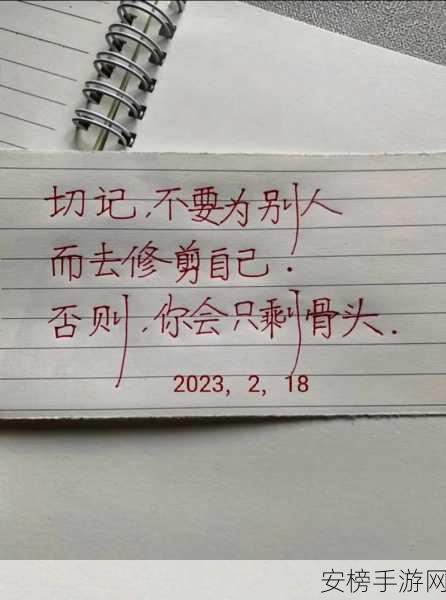 切记,不要为别人
而去修剪自己.
否则,你会只剩骨头.
2023, 2, 18
安榜手游网